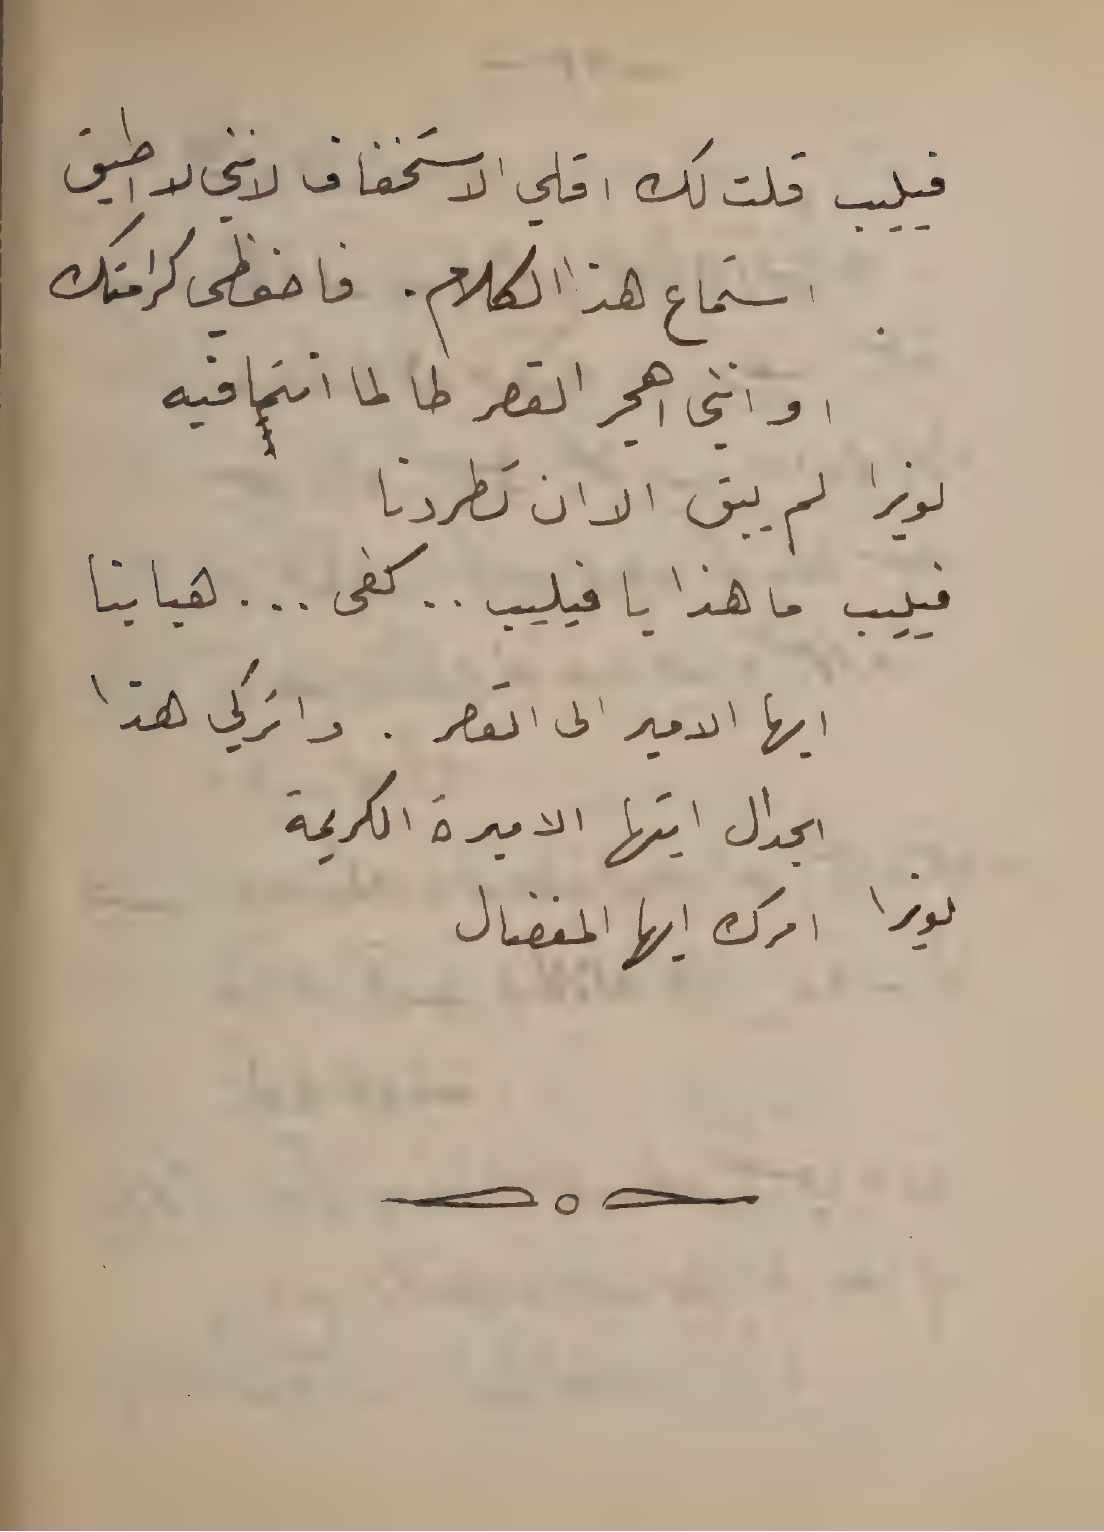 فيليب قلت لك اقلي الاستخفاف لانني لا اطيق
استماع هذا الكلام. فاحفظي كرامتك
او انني اهجر القصر طالما انتما فيه
لويزا لم يبق الا ان تطردنا
فيليب ما هذا يا فيليب .. كفى ... هيا بنا
ايها الامير الى القصر . واتركي هذا
الجدال ايتها الاميرة الكريمة
لويزا امرك ايها المفضال